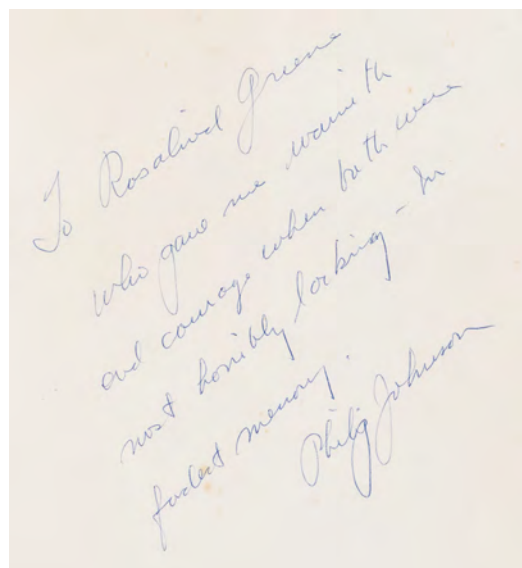 To Rosalind Greene
who gave me warmth
and courage when both were
most horribly lacking – In
fondest memory.
Philip Johnson